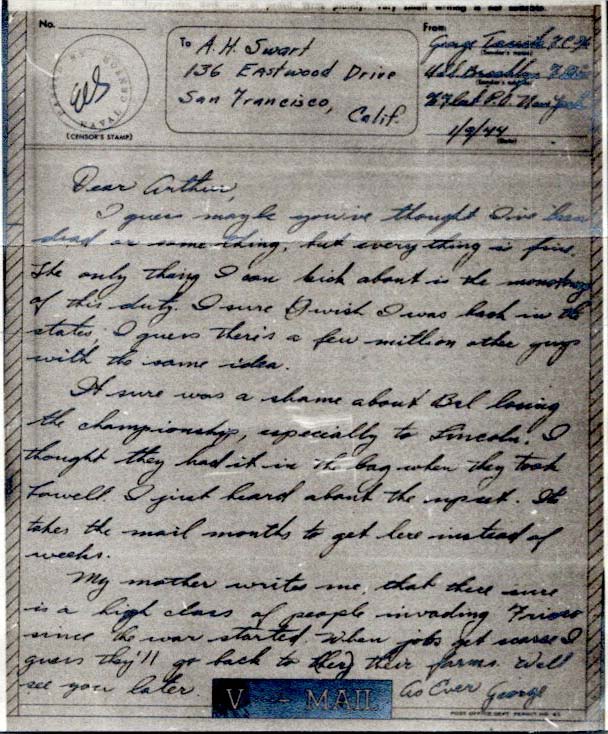 very small writing is not suitable.
No.
From
To A. H. Swart
136 Eastwood Drive
San Francisco,
Calif.
George
(Sender's name)
U.S.S. Brooklyn
% Fleet P.O. New York
1/9/44
(Date)
PASSED BY
NAVAL
(CENSOR'S STAMP)
Dear Arthur,
I guess maybe you've thought I've been
dead or something, but everything is fine.
The only thing I can kick about is the monotony
of this duty. I sure wish I was back in the
states, I guess there's a few million other guys
with the same idea.
It sure was a shame about Bal losing
the championship, especially to Lincoln. I
thought they had it in the bag when they took
Lowell I just heard about the upset. It
takes the mail months to get here instead of
weeks.
My mother writes me, that there sure
is a high class of people invading Frisco
since the war started. When jobs get scarce I
guess they'll go back to their farms. Well
see you later.
As Ever George
V - MAIL
POST OFFICE DEPT. PERMIT NO.